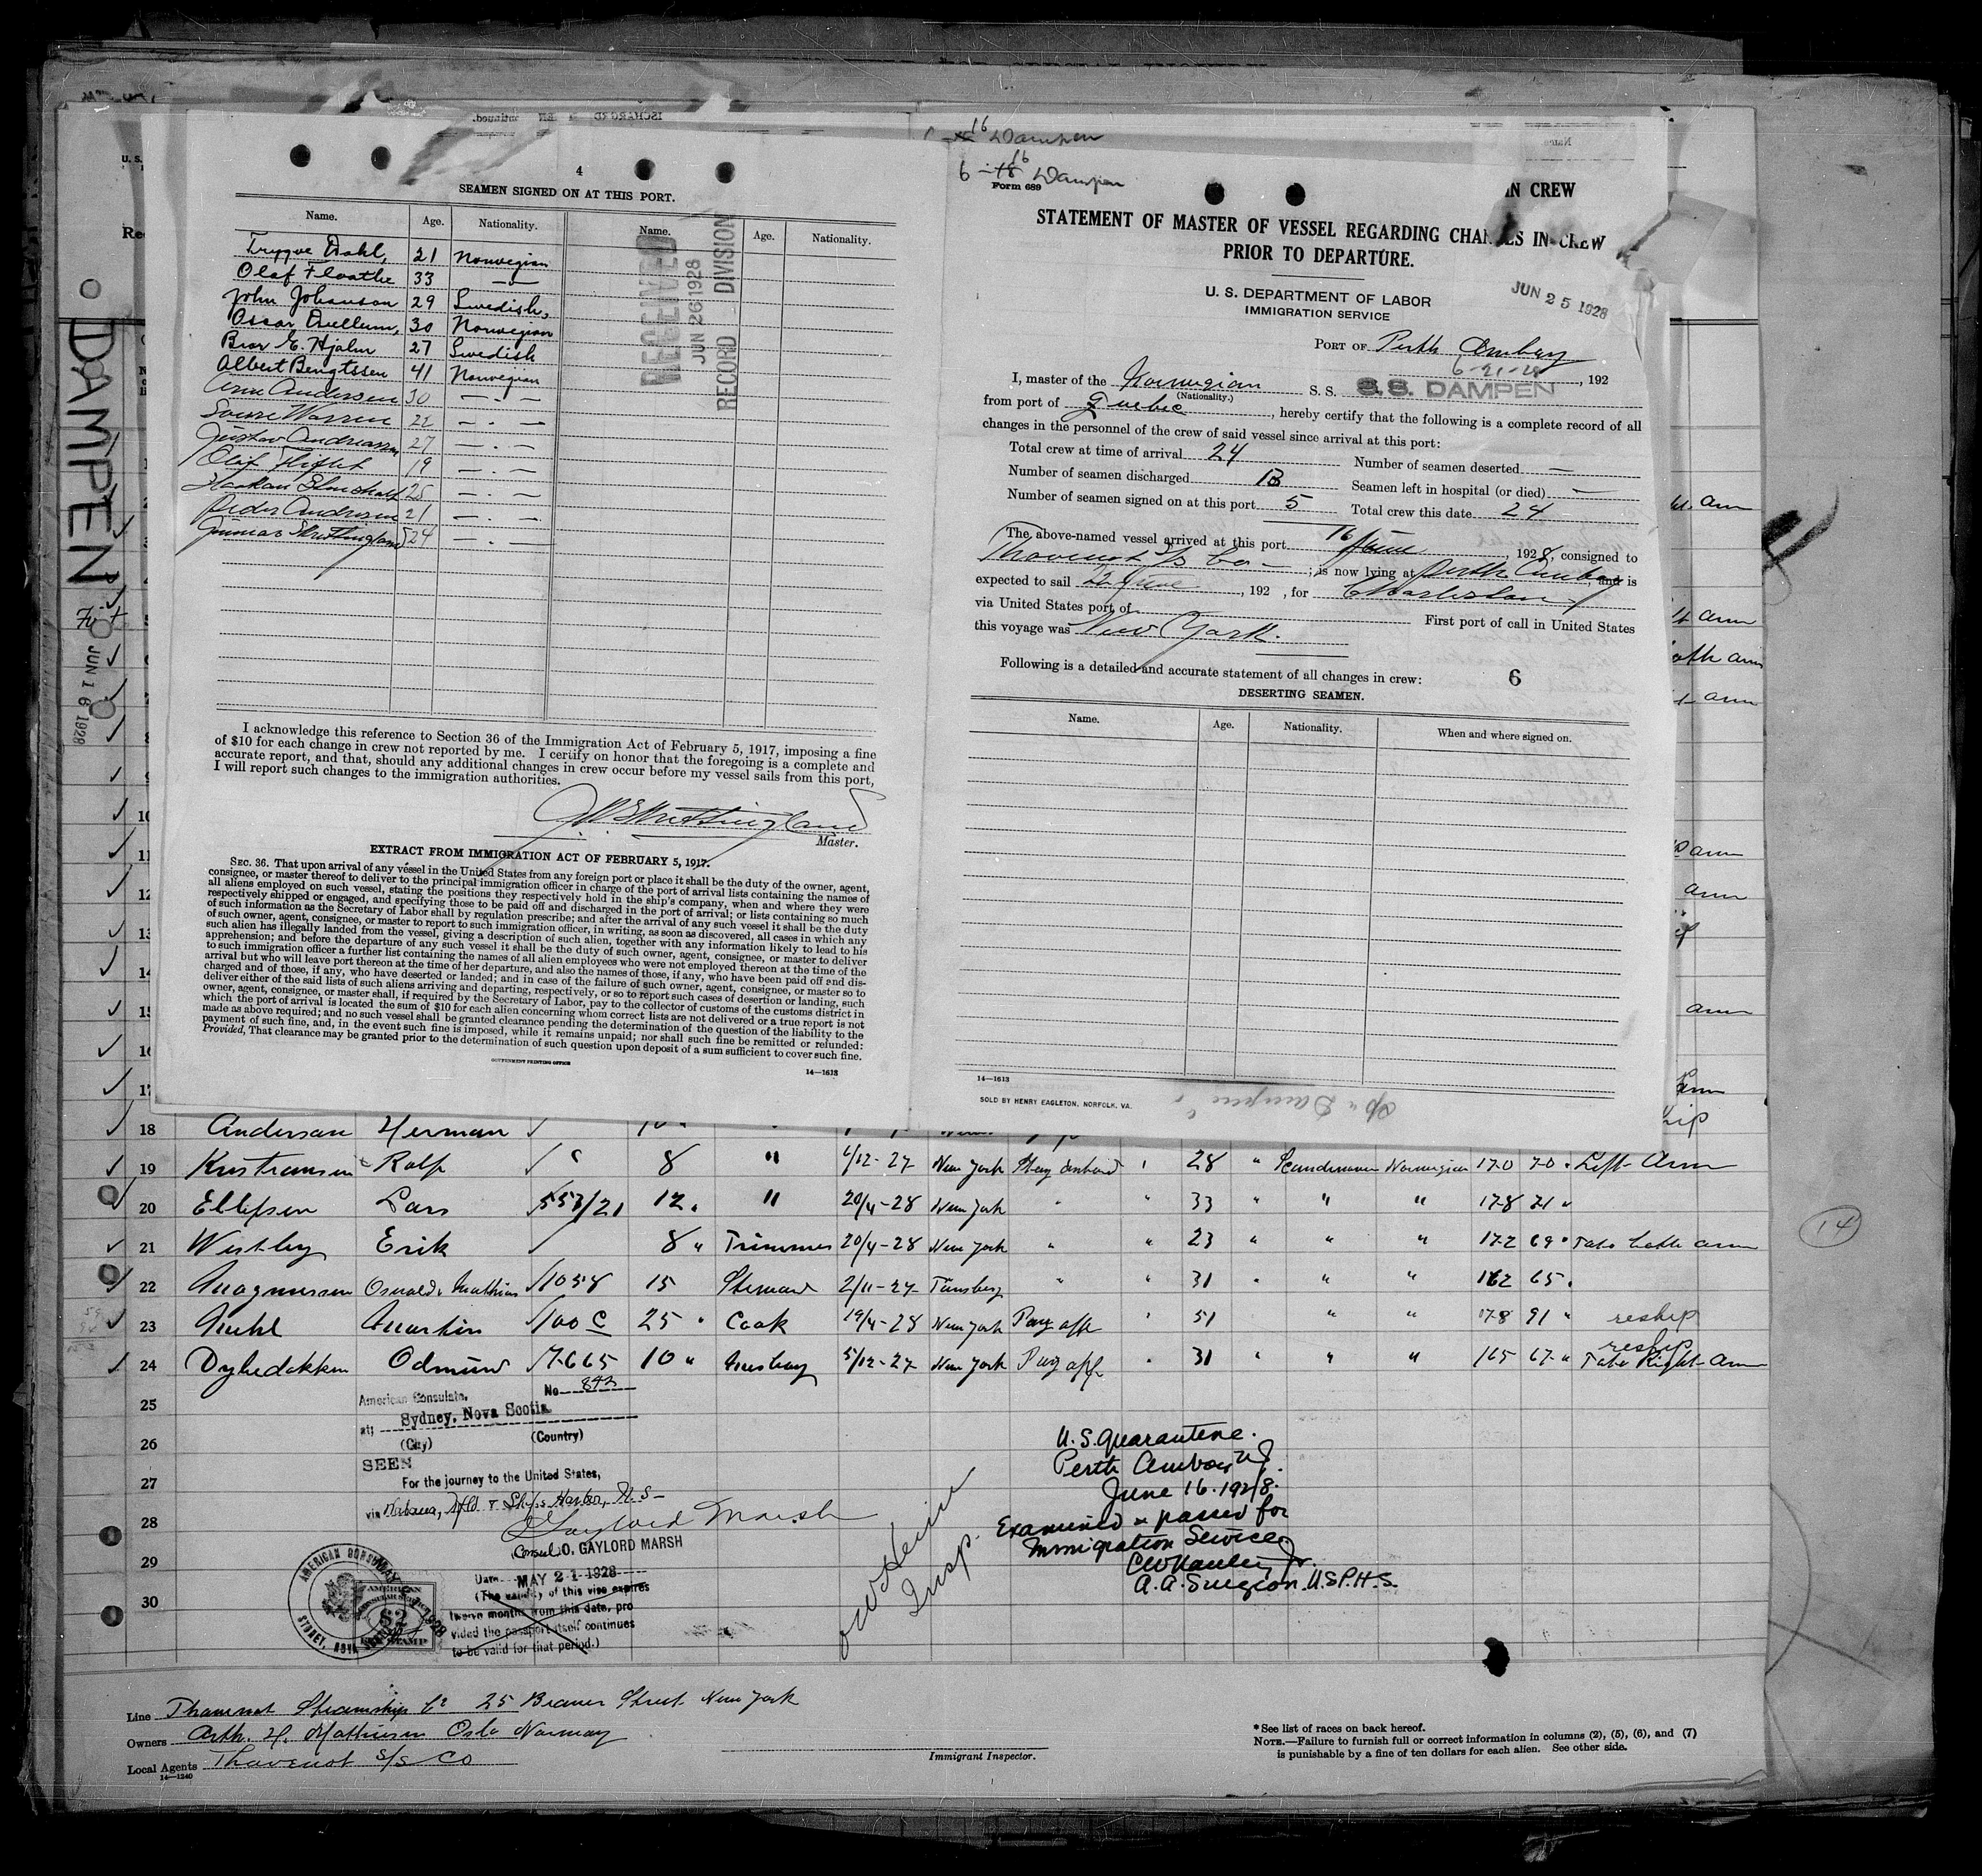 4
SEAMEN SIGNED ON AT THIS PORT.
Name. Age. Nationality. Name. Age. Nationality.
Tryggve Dahl, 21 Norwegian
Olaf Floathe 33 — —
John Johanson 29 Swedish,
Oscar 30 Norwegian
E. Hjalm 27 Swedish
Albert Bengtssen 41 Norwegian
Arne Andersen 30 — . —
Warren 22 — . —
Gustav Andreassen 27 — . —
Olaf 19 — . —
Haakon 25 — . —
Peder Andresen 21 — . —
Gunnar 24 — . —
RECEIVED
JUN 26 1928
RECORD DIVISION
I acknowledge this reference to Section 36 of the Immigration Act of February 5, 1917, imposing a fine
of $10 for each change in crew not reported by me. I certify on honor that the foregoing is a complete and
accurate report, and that, should any additional changes in crew occur before my vessel sails from this port,
I will report such changes to the immigration authorities.
Master.
EXTRACT FROM IMMIGRATION ACT OF FEBRUARY 5, 1917.
SEC. 36. That upon arrival of any vessel in the United States from any foreign port or place it shall be the duty of the owner, agent,
consignee, or master thereof to deliver to the principal immigration officer in charge of the port of arrival lists containing the names of
all aliens employed on such vessel, stating the positions they respectively hold in the ship's company, when and where they were
respectively shipped or engaged, and specifying those to be paid off and discharged in the port of arrival; or lists containing so much
of such information as the Secretary of Labor shall by regulation prescribe; and after the arrival of any such vessel it shall be the duty
of such owner, agent, consignee, or master to report to such immigration officer, in writing, as soon as discovered, all cases in which any
such alien has illegally landed from the vessel, giving a description of such alien, together with any information likely to lead to his
apprehension; and before the departure of any such vessel it shall be the duty of such owner, agent, consignee, or master to deliver
to such immigration officer a further list containing the names of all alien employees who were not employed thereon at the time of the
arrival but who will leave port thereon at the time of her departure, and also the names of those, if any, who have been paid off and dis-
charged and of those, if any, who have deserted or landed; and in case of the failure of such owner, agent, consignee, or master so to
deliver either of the said lists of such aliens arriving and departing, respectively, or so to report such cases of desertion or landing, such
owner, agent, consignee, or master shall, if required by the Secretary of Labor, pay to the collector of customs of the customs district in
which the port of arrival is located the sum of $10 for each alien concerning whom correct lists are not delivered or a true report is not
made as above required; and no such vessel shall be granted clearance pending the determination of the question of the liability to the
payment of such fine, and, in the event such fine is imposed, while it remains unpaid; nor shall such fine be remitted or refunded:
Provided, That clearance may be granted prior to the determination of such question upon deposit of a sum sufficient to cover such fine.
GOVERNMENT PRINTING OFFICE
14—1613
16 Dampen
6-16 Dampen
Form 689
IN CREW
STATEMENT OF MASTER OF VESSEL REGARDING CHANGES IN CREW
PRIOR TO DEPARTURE.
U. S. DEPARTMENT OF LABOR
IMMIGRATION SERVICE
JUN 25 1928
PORT OF Perth Amboy
6-21-28, 192
I, master of the Norwegian S. S. S.S. DAMPEN
(Nationality.)
from port of Quebec, hereby certify that the following is a complete record of all
changes in the personnel of the crew of said vessel since arrival at this port:
Total crew at time of arrival 24 Number of seamen deserted —
Number of seamen discharged 13 Seamen left in hospital (or died) —
Number of seamen signed on at this port 5 Total crew this date 24
The above-named vessel arrived at this port 16 June, 1928, consigned to
Thovenot S/S Co — ; is now lying at Perth Amboy, and is
expected to sail 22 June, 192 , for Charleston
via United States port of First port of call in United States
this voyage was New York.
Following is a detailed and accurate statement of all changes in crew: 6
DESERTING SEAMEN.
Name. Age. Nationality. When and where signed on.
14—1613
SOLD BY HENRY EAGLETON, NORFOLK, VA.
DAMPEN
JUN 16 1928
18 Anderson Herman
19 Kristiansen Rolf 8 " 1/12-27 New York Stay onboard 28 " Scandinavian Norwegian 170 70 Left Arm
20 Ellefsen Lars 553/21 12 " 20/4-28 New York " " 33 " " " 178 71 "
21 Westby Erik 8 " Trimmer 20/4-28 New York " " 23 " " " 172 69 " Tato both arm
22 Magnussen Oswald Mathias 1058 15 Steward 2/11-27 Tønsberg " " 31 " " " 162 65
23 Martin 100 C 25 " Cook 19/4-28 New York Pay off " 51 " " 178 91 " reship
24 Odmund 7665 10 " Messboy 5/12-27 New York Pay off " 31 " " " 165 67 " reship Tato Right Arm
25
26
27
28
29
30
No. 843
American Consulate,
at: Sydney, Nova Scotia
(City) (Country)
SEEN
For the journey to the United States,
via Wabana, Nfld + Ships Harbor, N.S—
O Gaylord Marsh
Consul O. GAYLORD MARSH
Date MAY 21 1928
(The validity of this vise expires
twelve months from this date, pro
vided the passport itself continues
to be valid for that period.)
AMERICAN CONSULAR SERVICE
$2
FEE STAMP
Insp.
U.S. Quarantine.
Perth Amboy NJ.
June 16. 1928.
Examined & passed for
Immigration Service.
A.A. Surgeon. U.S.P.H.S.
14
Line Thovenot Steamship Co 25 Beaver Street New York
Owners Arth. H. Mathiesen Oslo Norway
Local Agents Thovenot S/S Co
14—1240
Immigrant Inspector.
* See list of races on back hereof.
NOTE.—Failure to furnish full or correct information in columns (2), (5), (6), and (7)
is punishable by a fine of ten dollars for each alien. See other side.